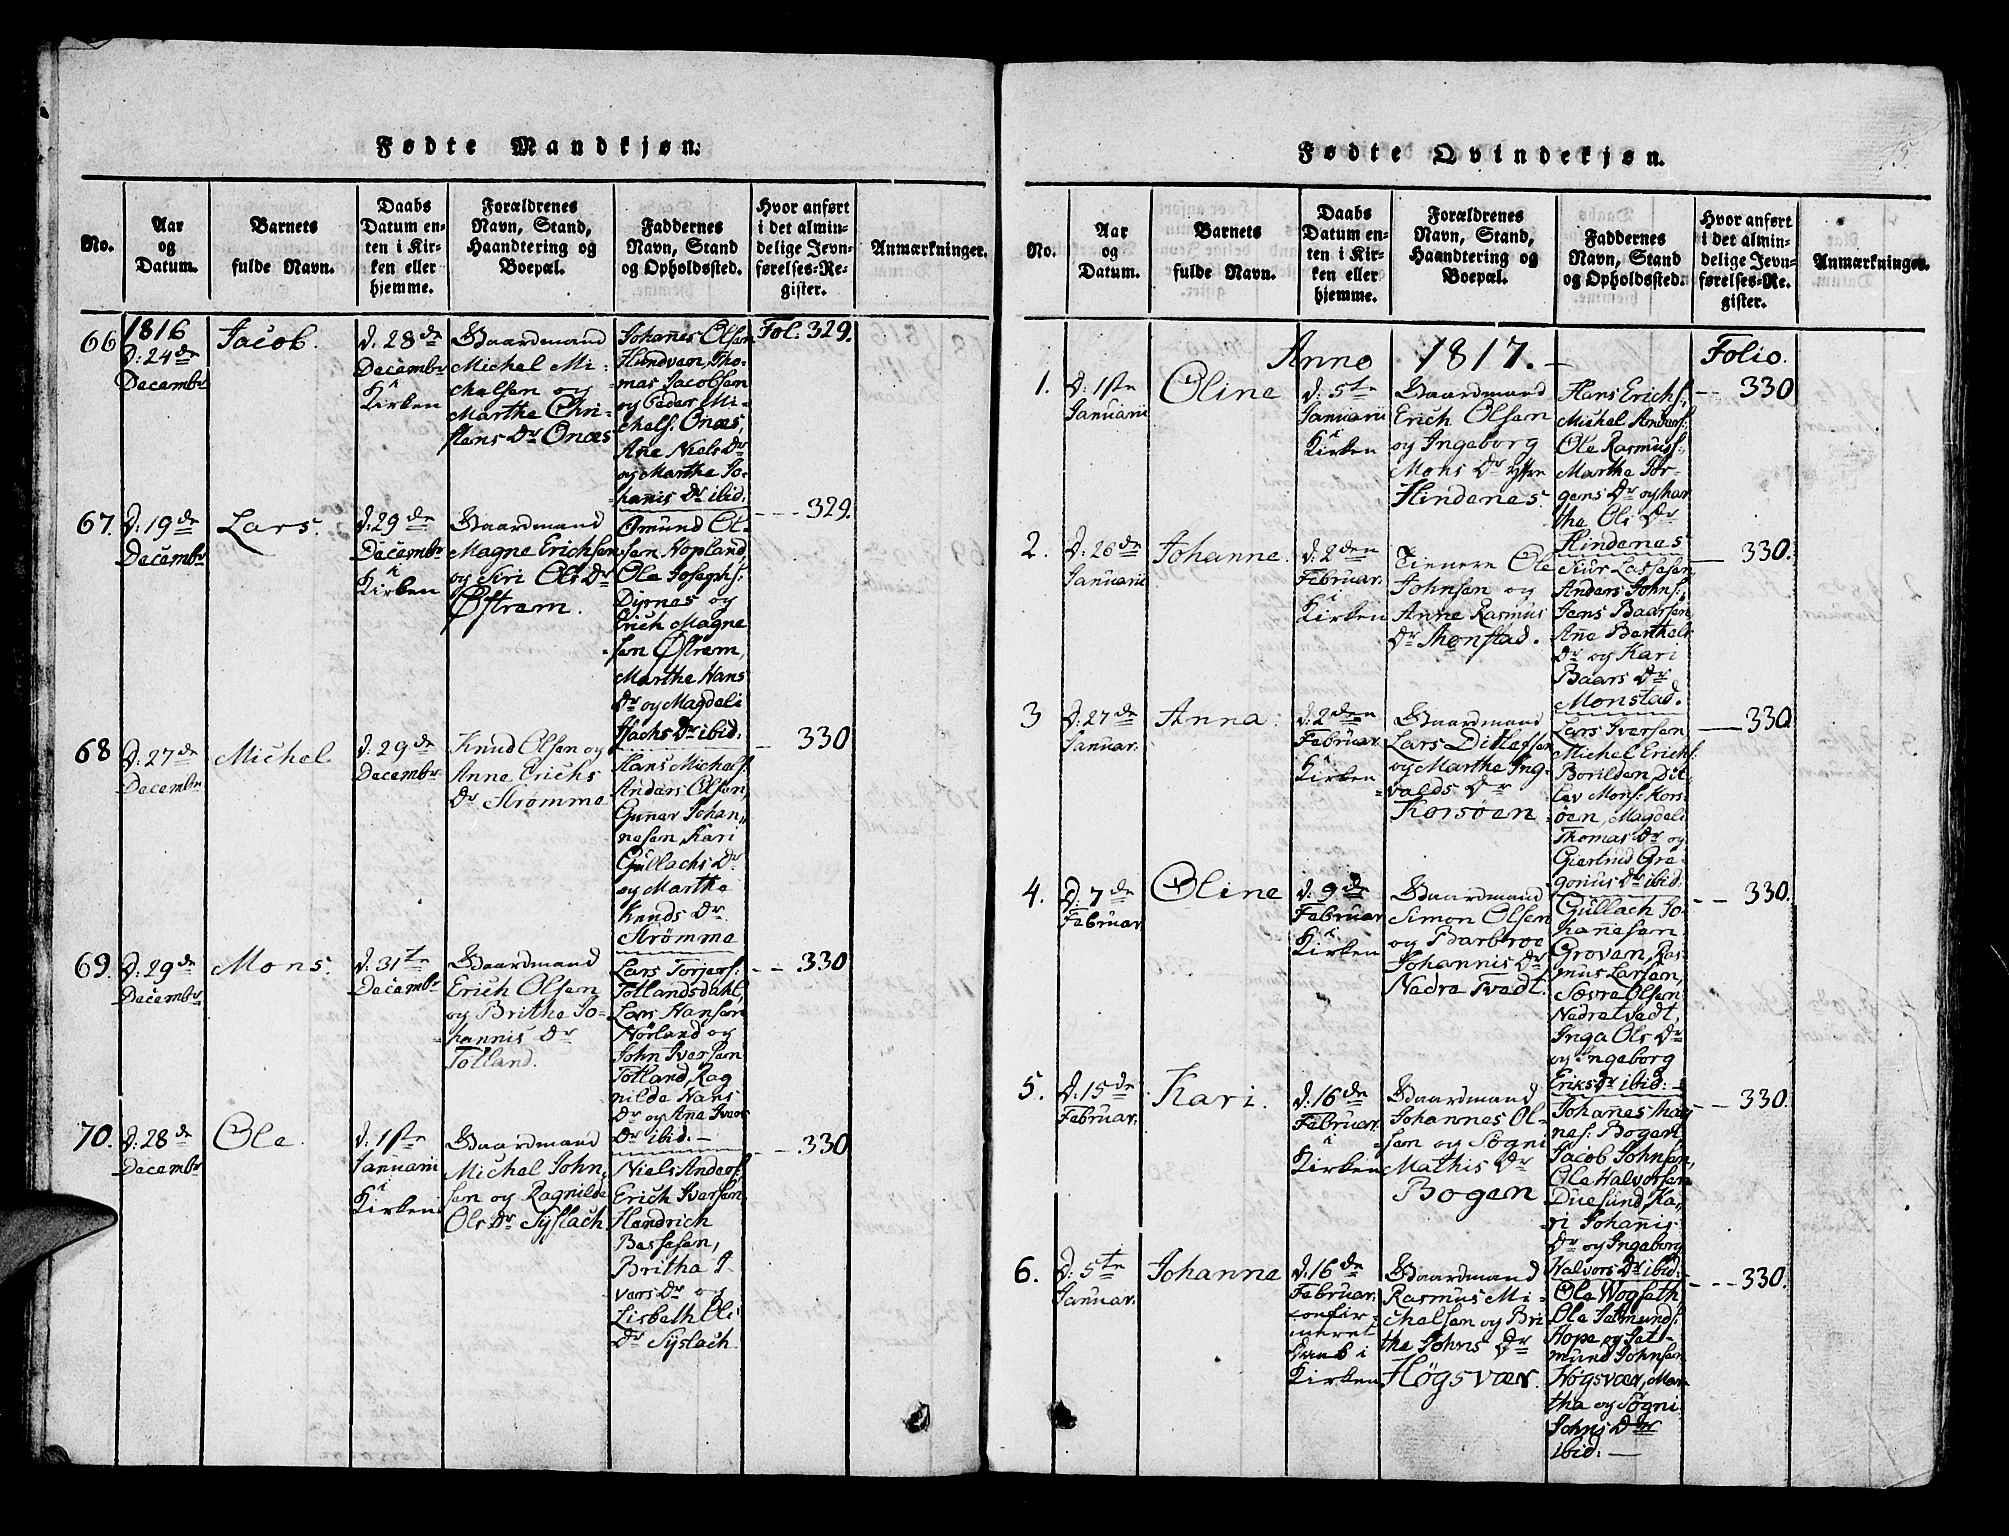 Fødte Mandkjøn.
No.
Aar
og
Datum.
Barnets
fulde Navn.
Daabs
Datum en-
ten i Kir-
ken eller
hjemme.
Forældrenes
Navn, Stand,
Haandtering og
Boepæl.
Faddernes
Navn, Stand
og Opholdssted.
Hvor anført
i det almin-
delige Jevn-
førelses-Re-
gister.
Anmærkninger.
66
1816
D: 24de
Decembr
Jacob.
d. 28de
Decembr
i
Kirken
Gaardmand
Michel Mi-
chelsen og
Marthe Chri-
stens Dr Onæs
Johañes Olsen
Hundven, Tho-
mas Jacobsen
og Peder Mi-
chels. Onæs,
Añe Niels Dr
og Marthe Jo-
hañis Dr ibid:
Fol. 329.
67.
D: 19de
Decembr
Lars.
d: 29de
Decembr
i
Kirken
Gaardmand
Magne Erichsen
og Siri Ols Dr
Østrem.
Omund Ol-
sen Hopland,
Ole Josephs:
Dyrnes og
Erich Magne
sen Østrem,
Marthe Hans
Dr og Magdeli
Isachs Dr ibid:
329.
68
D: 27de
Decembr
Michel
d. 29de
Decembr
Knud Olsen og
Anne Erichs
Dr Strømme
Hans Michels:
Anders Olsen,
Guner Johan,,
nesen, Kari
Gullachs Dr
og Marthe
Knuds Dr
Strømme
330
69.
D: 29de
Decembr
Mons.
d: 31te
Decembr
Gaardmand
Erich Olsen
og Brithe Jo-
hannis Dr
Totland.
Lars Torjers:
Totlandsdahl,
Lars Hansen
Nørland og
John Iversen
Totland, Rag
nilde Hans
Dr og Ane Ivers
Dr ibid:
330
70.
D: 28de
Decembr
Ole.
d: 1ste
Januarii
i
Kirken
Gaardmand
Michel John,,
sen og Ragnilde
Ols Dr Syslach
Niels Anders:
Erich Iversen,
Hendrich
Bessesen,
Britha I-
vers Dr og
Lisbeth Ols
Dr Syslach
330
Fødte Qvindekjøn.
5
No.
Aar
og
Datum.
Barnets
fulde Navn.
Daabs
Datum en-
ten i Kir-
ken eller
hjemme.
Forældrenes
Navn, Stand,
Haandtering og
Boepæl.
Faddernes
Navn, Stand
og Opholdssted.
Hvor anført
i det almin-
delige Jevn-
førelses-Re-
gister.
Anmærkninger.
Anno 1817.
Folio.
1.
D: 1ste
Januarii
Oline
d: 5te
Januarii
i
Kirken
Gaardmand
Erich Olsen
og Ingeborg
Mons Dr Ytre
Hindenes.
Hans Erichs:,
Michel Anders:
Ole Rasmuss:
Marthe Jør-
gens Dr og Mar
the Ols Dr
Hindenes
330
2.
D: 26de
Januarii
Johanne.
d: 2den
Februar.
i
Kirken
Tienere Ole
Johnsen og
Anne Rasmus
Dr Monstad.
Siur Lassesen
Anders Johns:,
Jens Baarsen,
Añe Berthels
Dr og Kari
Baars Dr
Monstad.
330.
3
D: 27de
Januar.
Anna.
d: 2den
Februar.
i
Kirken
Gaardmand
Lars Ditlefsen
og Marthe Ing-
valds Dr
Korsøen
Lars Iversen
Michel Erichs:
Borilden, Dit,,
lev Mons: Kors-
øen, Magdeli
Thomas Dr og
Giertrud Gre-
gorius Dr ibid.
330
4.
D: 7de
Februar
Oline
d: 9de
Februar
i
Kirken
Gaardmand
Simon Olsen
og Barbroe
Johannis Dr
Nedre Tvedt.
Gullach Jo-
hañesen
Groven, Ras-
mus Larsen,
Sævre Olsen
Nedretvedt,
Inga Ols Dr
og Ingeborg
Eriks Dr ibid:
330.
5.
D: 15de
Februar.
Kari.
d: 16de
Februar.
i
Kirken
Gaardmand
Johannes Ol-
sen og Søgni
Mathis Dr
Bogen
Johañes Mag
nes: Bogen,
Jacob Johnsen,
Ole Halvorsen
Duesund, Ka-
ri Johañis
Dr og Ingeborg
Halvors Dr ibid:
330.
6.
D: 5te
Januar.
Johanne
d: 16de
Februar.
confir-
meret
Daab i
Kirken
Gaardmand
Rasmus Mi-
chelsen og Bri
the Johns Dr
Høgsvær.
Ole Wogseth
Ole Salmunds:
Hope og Sal-
mund Johnsen
Høgsvær, Mar-
tha og Søgni
Johns Dr
ibid:
330.